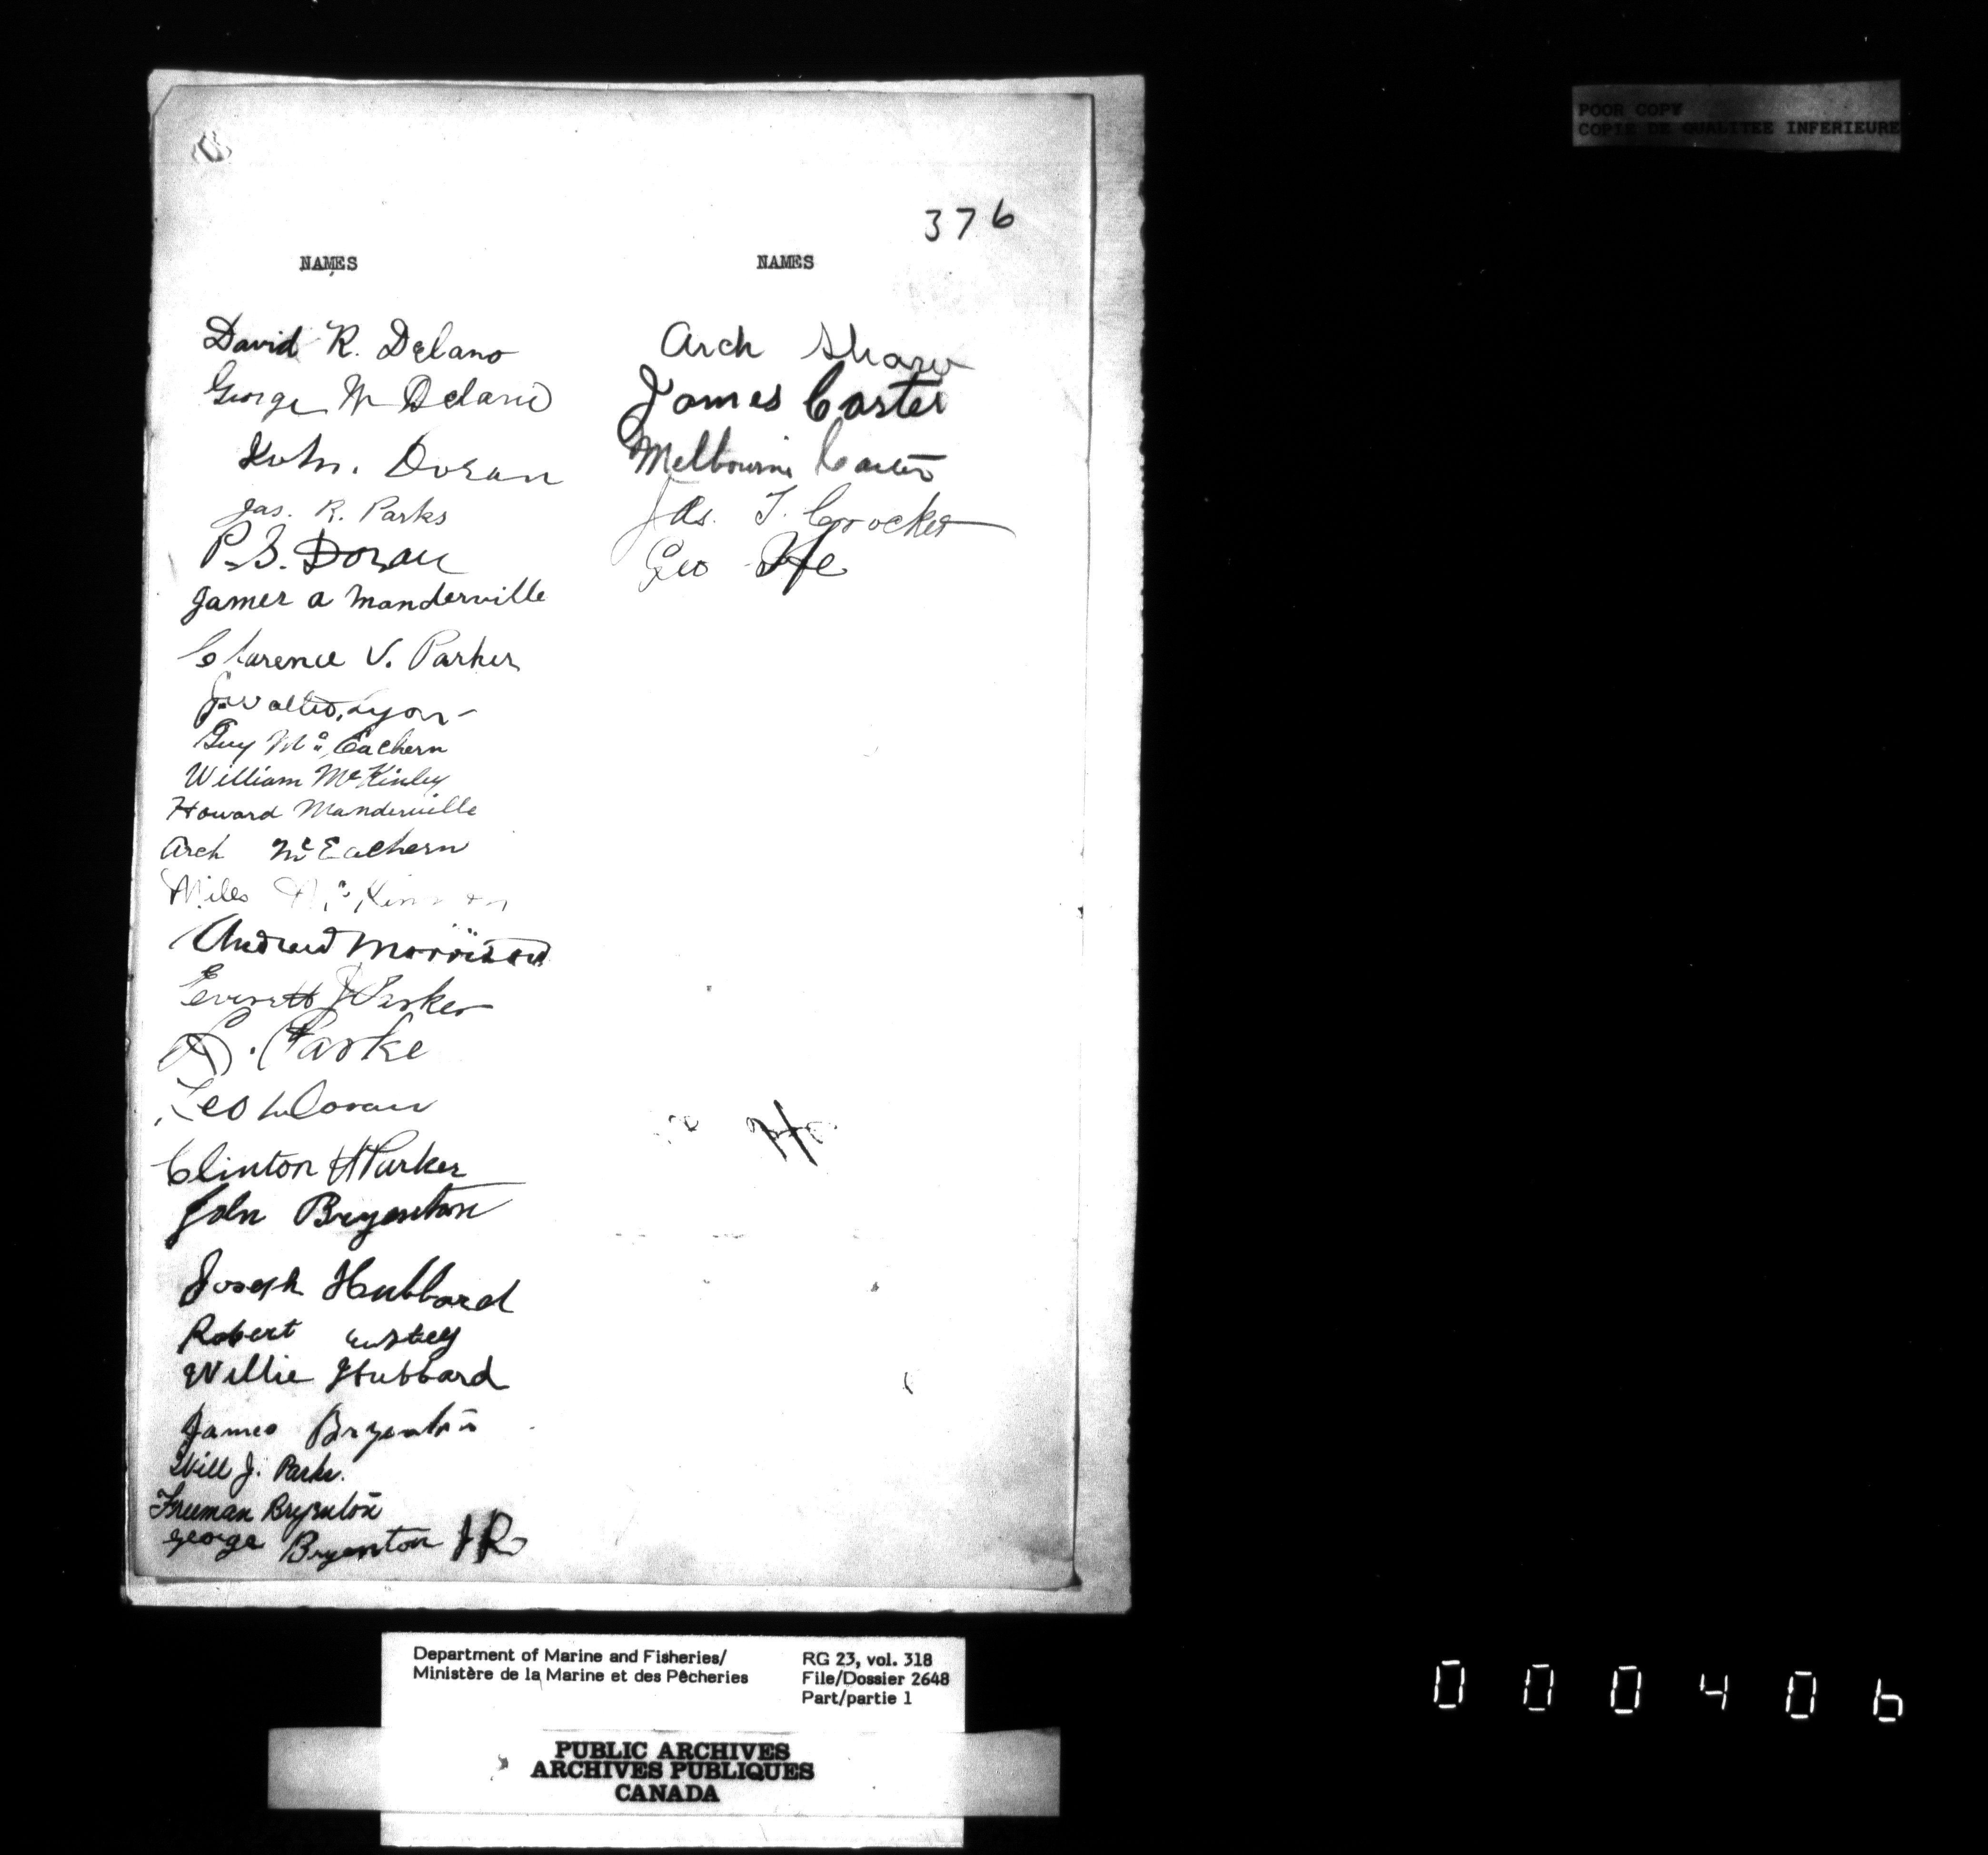 POOR COPY
COPIE DE QUALITEE INFERIEURE
376
NAMES
NAMES
David R. Delano
George W Delano
John. Doran
Jas. R. Parks
P. S. Doran
James a Manderville
Clarence V. Parker
J. Walter Lyon
Guy Mc Eachern
William McKinley
Howard Manderville
Arch McEachern
Miles McKinnon
Andrew Morrison
Everett J Parker
Parke
Leo Doran
Clinton H Parker
John Bryenton
Joseph Hubbard
Robert
Willie Hubbard
James Bryenton
Will J. Parks.
Freeman Bryenton
George Bryenton JR
Arch Shaw
James Carter
Melbourne Carter
Jas. T. Crocker
Geo
Department of Marine and Fisheries/
Ministère de la Marine et des Pêcheries
RG 23, vol. 318
File/Dossier 2648
Part/partie 1
PUBLIC ARCHIVES
ARCHIVES PUBLIQUES
CANADA
000406